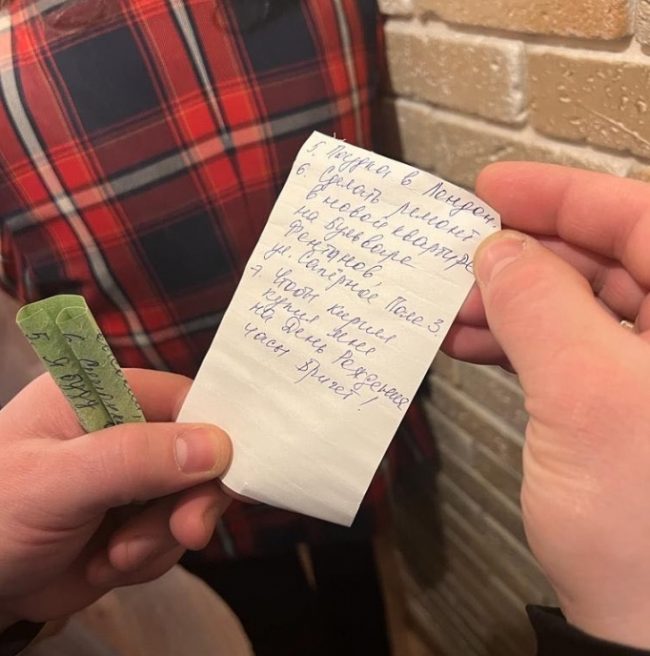 5. Поездка в Лондон.
6. Сделать ремонт
в новой квартире
на Бульваре
Фонтанов,
ул. Сапёрное Поле 3.
7. Чтобы Кирилл
купил мне
на День Рождения
часы Бригет!
5. Я
6.